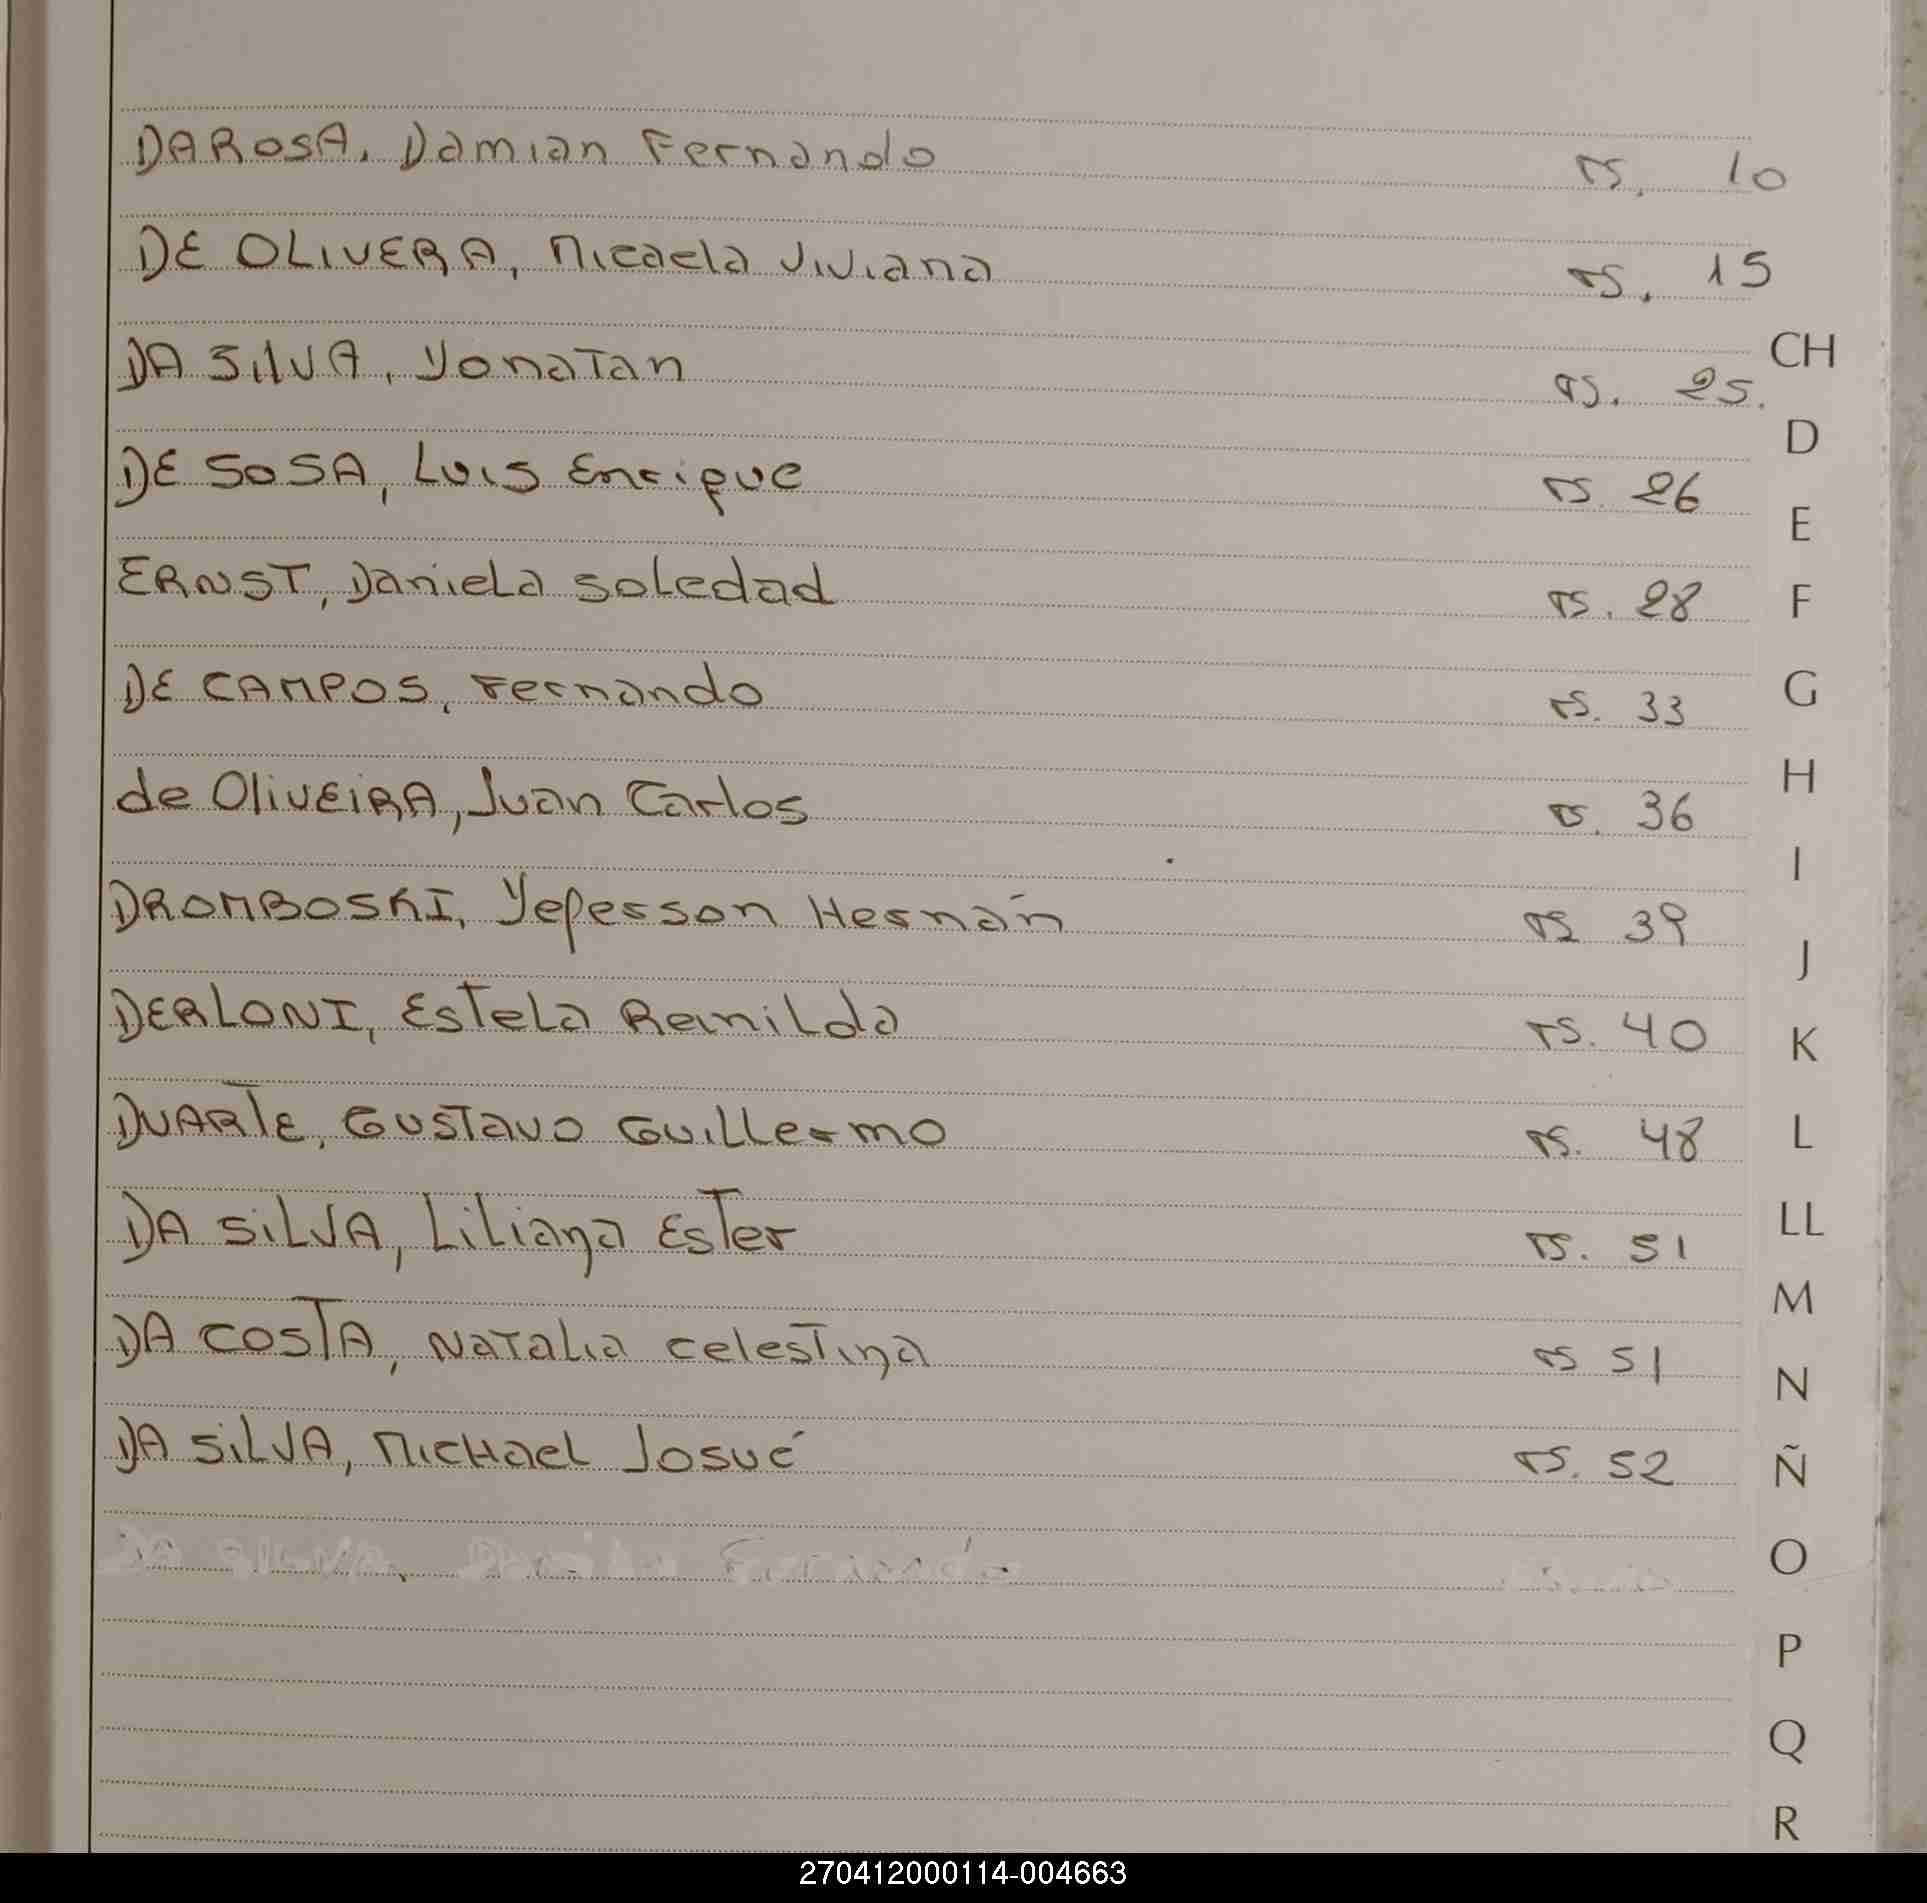 DA ROSA, Damian Fernando rs. 10
DE OLIVERA, Micaela Viviana rs. 15
DA SILVA, Yonatan rs. 25.
DE SOSA, Luis Enrique rs. 26
ERNST, Daniela Soledad rs. 28
DE CAMPOS, Fernando rs. 33
de OliVEiRA, Juan Carlos rs. 36
DROMBOSKI, Yeferson Hernán rs 39
DERLONI, Estela Reinilda rs. 40
DUARTE, Gustavo Guillermo rs. 48
DA SiLVA, Liliana Ester rs. 51
DA COSTA, Natalia Celestina rs 51
DA SiLVA, Michael Josué rs. 52
CH
D
E
F
G
H
I
J
K
L
LL
M
N
Ñ
O
P
Q
R
270412000114-004663